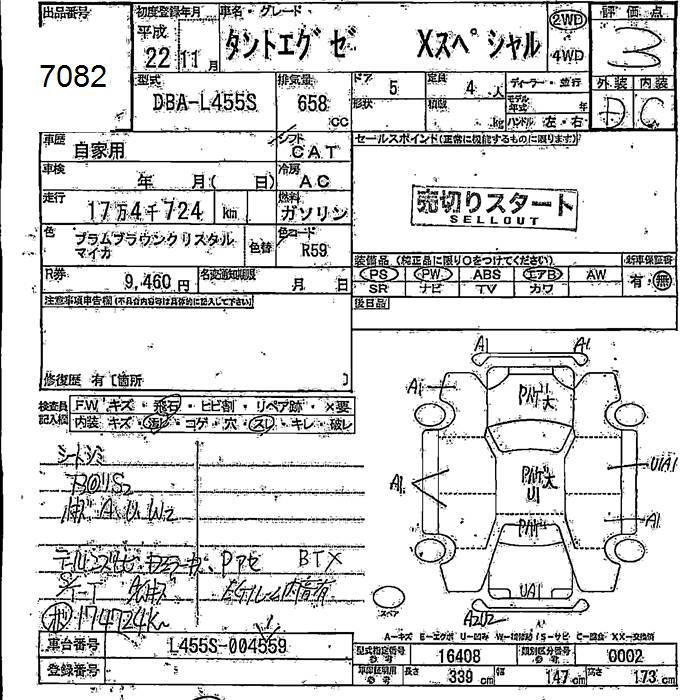 出品番号
7082
初度登録年月
平成
22年 11月
車名・グレード
タントエグゼ Xスペシャル
2WD
4WD
評価点
3
外装 内装
D C
型式
DBA-L455S
排気量
658 CC
ドア
5
定員
4 人
形状
積載
kg
ディーラー・並行
モデル年式 年
ハンドル 左・右
車歴
自家用
シフト
CAT
車検
年 月( 日)
冷房
AC
走行
17万4千724 km
燃料
ガソリン
色
プラムブラウンクリスタル
マイカ
色替
色コード
R59
R券
9,460円
名変通知期限
月 日
セールスポイント(正常に機能するものに限ります)
売切りスタート
SELLOUT
装備品(純正品に限り○をつけてください)
新車保証書
PS PW ABS エアB AW
SR ナビ TV カワ
有・無
後日品
注意事項申告欄(不具合内容等は具体的に記入して下さい)
修復歴 有〔箇所 〕
検査員記入欄
F.W キズ・飛石・ヒビ割・リペア跡・×要
内装 キズ・汚レ・コゲ・穴・スレ・キレ・破レ
シートシミ
BTX
174724K
A1 A1
A1
A1
U1
U1A1
A1
UA1
A2U2
スペア
A-キズ E-エクボ U-凹み
S-サビ C-腐食 XX-交換済
車台番号
L455S-004559
登録番号
型式指定番号 参考
16408
類別区分番号 参考
0002
長さ 339 cm 幅 147 cm 高さ 173 cm